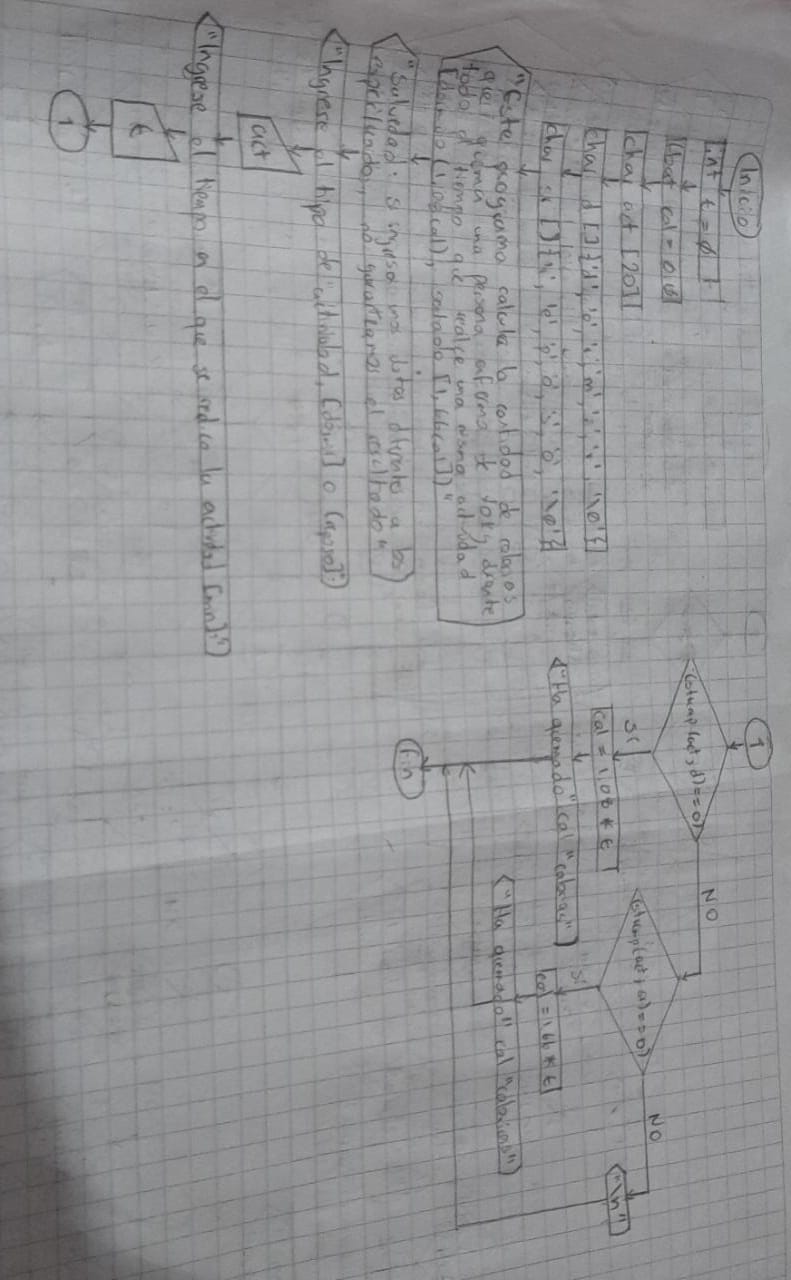 Inicio
int t = 0
float cal = 0,0
char act [20]
char d [] {'d', 'o', 'r', 'm', 'i', 'r', '\0'}
char a [] {'r', 'e', 'p', 'o', 's', 'o', '\0'}
"Este programa calcula la cantidad de
que quema una persona enferma de 70kg durante
todo el tiempo que realice una misma actividad
[dormido (1,08cal), sentado [1,66cal])"
"Salvedad: si ingresa datos diferentes a los
especificados, no garantizamos el resultado"
"Ingrese el tipo de actividad, [dormir] o (reposo]:"
act
"Ingrese el tiempo en el que se realiza la actividad [min]:"
t
1
1
(strcmp (act, d) == 0)
NO
SI
cal = 1,08 * t
"Ha quemado" cal "calorias"
(strcmp (act, a) == 0)
NO
SI
cal = 1,66 * t
"Ha quemado" cal "calorias"
"\n"
Fin